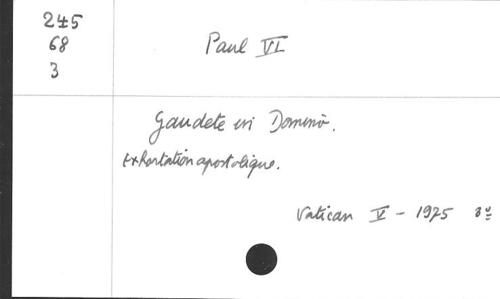 245
68
3
Paul VI
Gaudete in Domino.
Exhortation apostolique.
Vatican V - 1975 8º